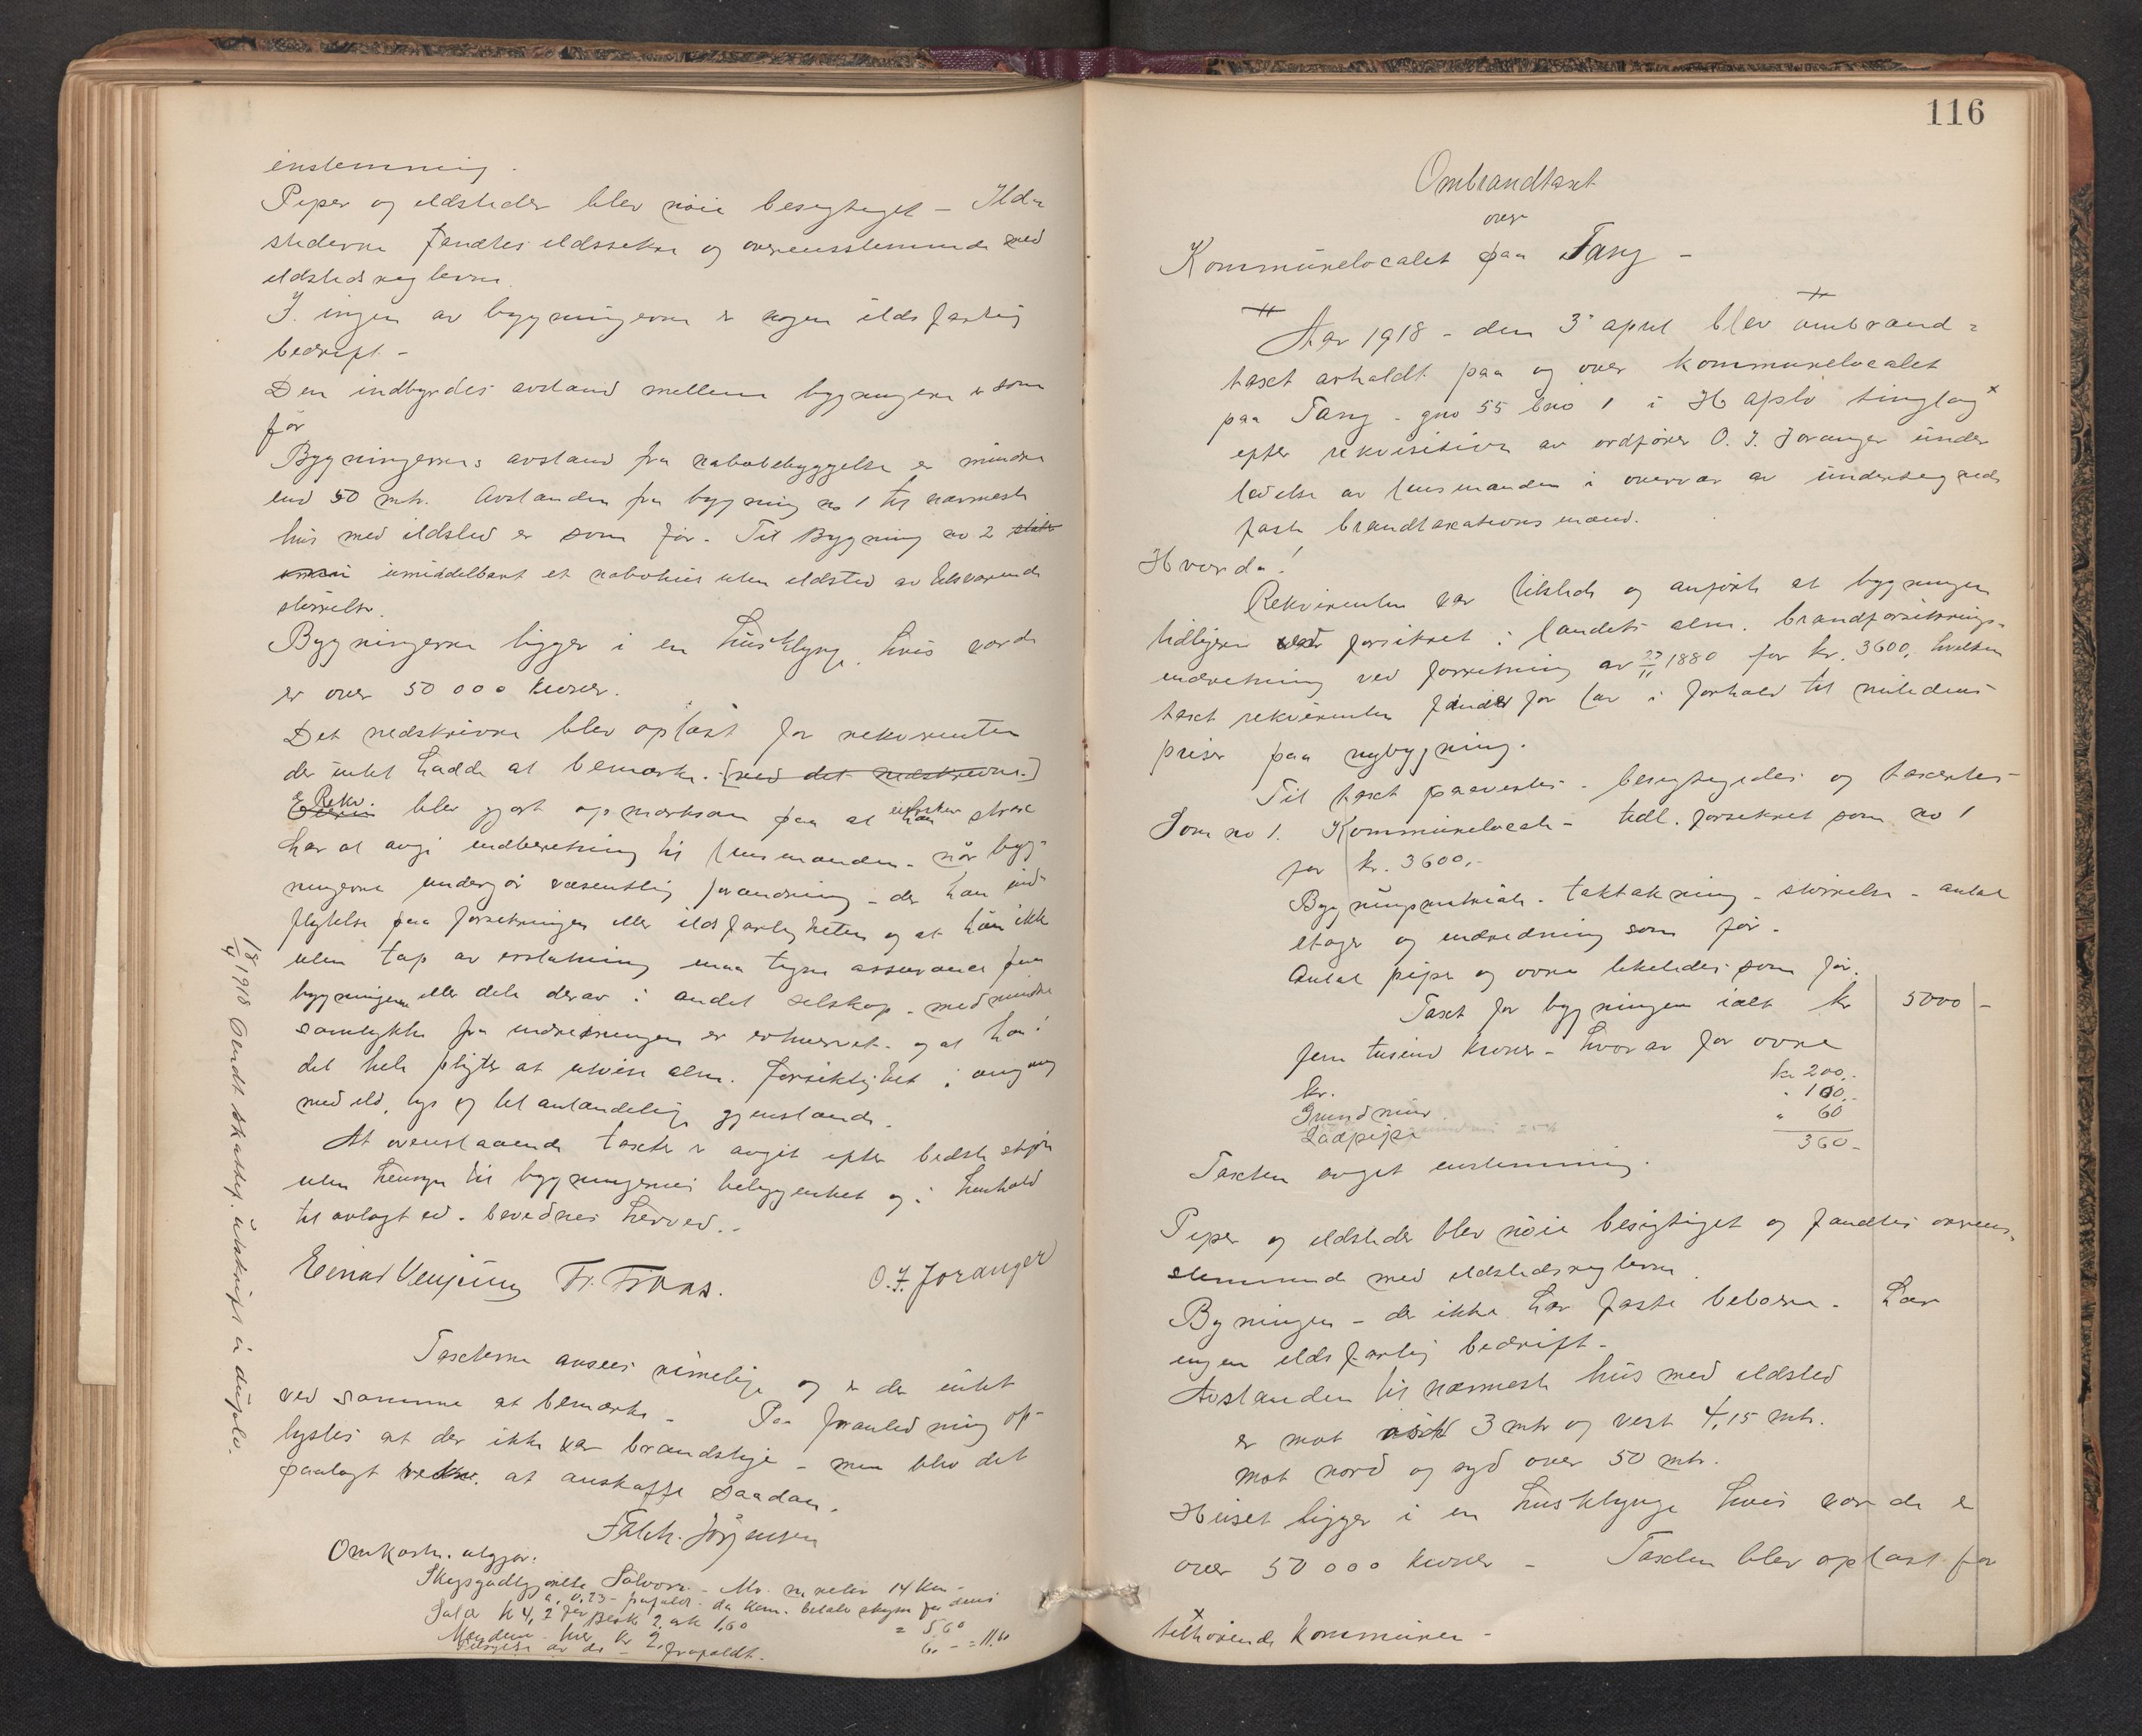 enstemmig.
Piper og ildsteder blev nøie besigtiget - Ild-
stederne fandtes ildssikre og overensstemmende med
ildstedsreglerne.
I ingen av bygningerne er nogen ildsfarlig
bedrift -
Den indbyrdes avstand mellem bygningerne er som
før
Bygningernes avstand fra nabobebyggelse er mindre
end 50 mtr. Avstanden fra bygning no 1 til nærmeste
hus med ildsted er som før. Til Bygning no 2
umiddelbart et nabohus uten ildsted av tilsvarende
størrelse.
Bygningerne ligger i en husklynge, hvis værdi
er over 50 000 kroner.
Det nedskrevne blev oplæst for rekvirenten
der intet hadde at bemærke. [ved det nedskrevne.]
Rekv. blev gjort opmerksom paa at straks
har at avgi indberetning til lensmanden - når byg-
ningerne undergår væsentlig forandring - der kan ind-
flytelse paa forsikringen eller ildsfarligheten og at han ikke
uten tap av erstatning maa tegne assurance paa
bygningerne eller dele derav i andet selskap - med mindre
samtykke fra indretningen er erhvervet - og at han i
det hele pligter at utvise alm. forsiktighet i omgang
med ild, lys og let antændelige gjenstande.
At ovenstaaende takster er avgit efter bedste skjøn
uten hensyn til bygningernes beliggenhet og i henhold
til avlagt ed - bevidnes herved. -
Einar Venjum Fr. Frøas. O. J. Joranger
Taksterne ansees rimelige og er der intet
ved samme at bemærke - Paa foranledning op-
lystes at der ikke var brandstige - men blev det
paalagt rekv. at anskaffe saadan.
Falch. Jørgensen
Omkostn. utgjør:
Skysgodtgjørelse Salvorn - Mr. m. retur 14 km -
a. 0,23 - frafaldt - da kom. betale skyss for dem
5,60
Mændene hver kr 2. 6. - = 11,60
frafaldt.
18/4 1918 Sendt skattef. utskrift in duplo.
116
Ombrandtakst
over
Kommunelocalet paa Tang -
Aar 1918 - den 3. april blev ombrand-
takst avholdt paa og over kommunelocalet
paa Tang - gno 55 bno 1 i Hafslo tinglag x
efter rekvisition av ordfører O. J. Joranger under
ledelse av lensmanden i overvær av undertegnede
faste brandtaksations mænd.
Hvorda!
Rekvirenten var tilstede og anførte at bygningen
tidligere var forsikret i landets alm. brandforsikrings-
indretning ved forretning av 23/11 1880 for kr. 3600, hvilken
takst rekvirenten finder for lav i forhold til nutidens
priser paa nybygning.
Til takst paavistes - besigtigedes og takseredes
Som no 1. Kommunelocale - tidl. forsikret som no 1
for kr. 3600,-
Bygningsmateriale - taktækning - størrelse - antal
etager og indredning som før.
Antal piper og ovne likeledes som før.
Takst for bygningen ialt kr 5000 -
fem tusind kroner - hvorav for ovne
kr 200.-
kr. " 100.-
Grundmur " 60
Ladpipe 360 -
Taksten avgit enstemmig.
Piper og ildsteder blev nøie besigtiget og fandtes overens-
stemmende med ildstedsreglerne.
Bygningen - der ikke har faste beboere - har
ingen ildsfarlig bedrift -
Avstanden til nærmeste hus med ildsted
er mot øst 3 mtr og vest 4,15 mtr.
mot nord og syd over 50 mtr.
Huset ligger i en husklynge hvis værdi er
over 50 000 kroner - Taksten blev oplæst for
x tilhørende kommunen -